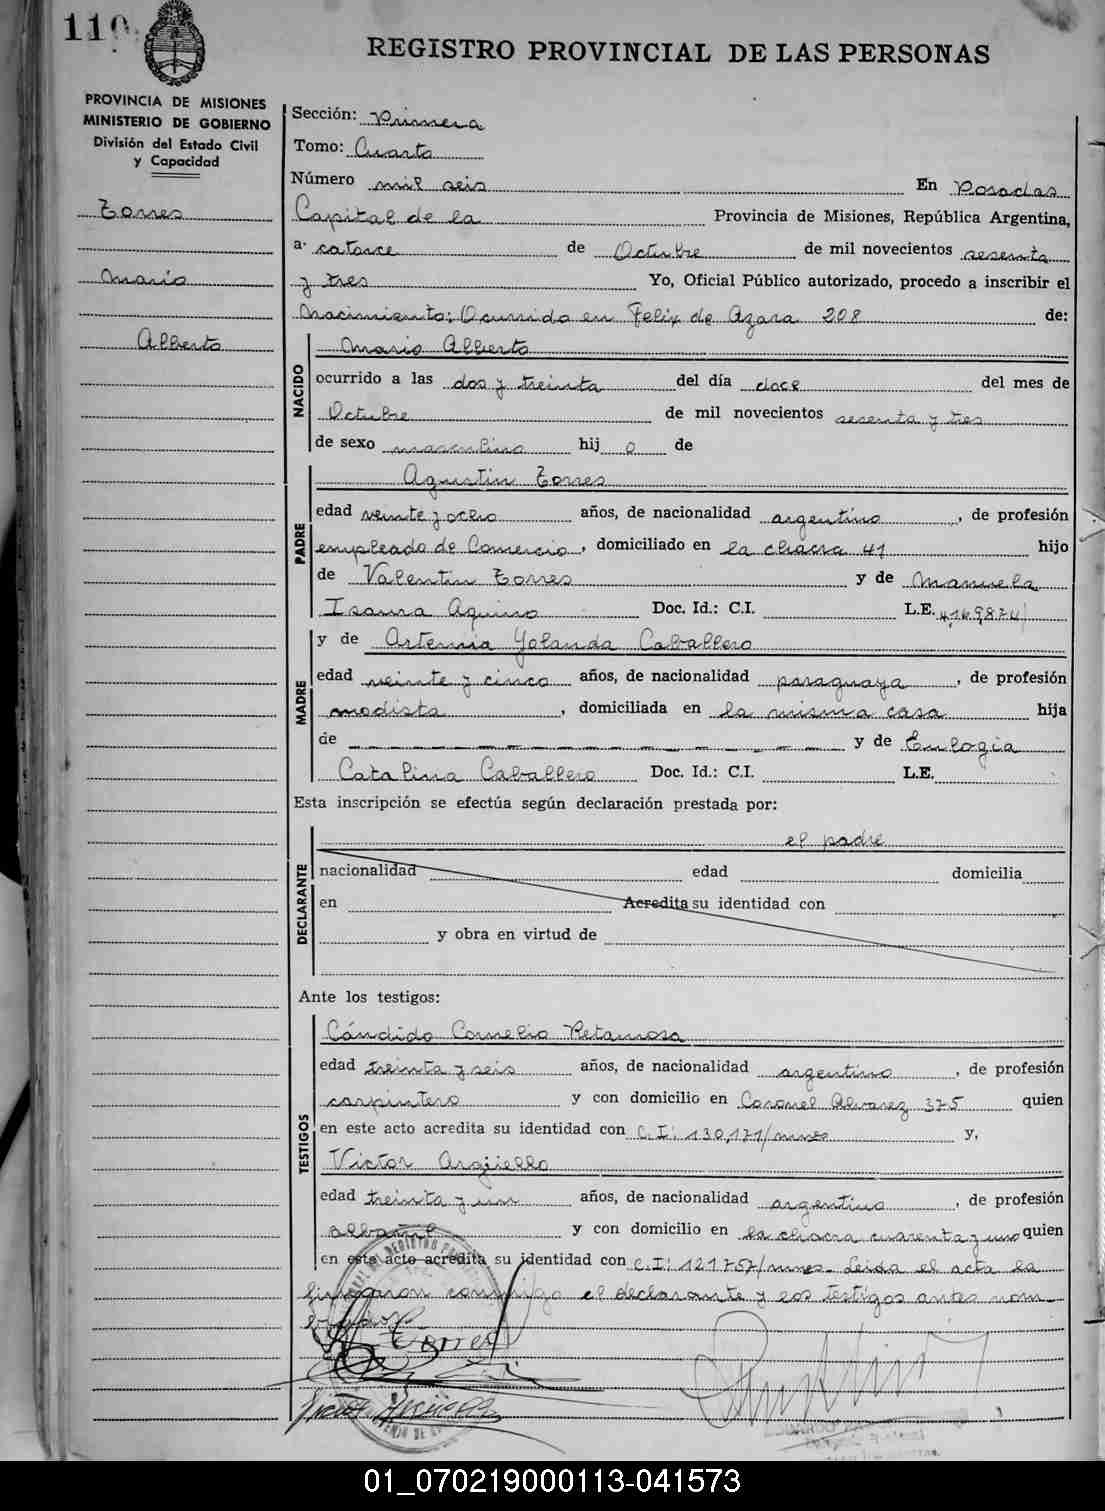 110
REGISTRO PROVINCIAL DE LAS PERSONAS
PROVINCIA DE MISIONES
MINISTERIO DE GOBIERNO
División del Estado Civil
y Capacidad
Torres
Mario
Alberto
Sección: Primera
Tomo: Cuarto
Número mil seis En Posadas
Capital de la Provincia de Misiones, República Argentina,
a catorce de Octubre de mil novecientos sesenta
y tres Yo, Oficial Público autorizado, procedo a inscribir el
Nacimiento: Ocurrido en Felix de Azara 208 de:
NACIDO
Mario Alberto
ocurrido a las dos y treinta del día doce del mes de
Octubre de mil novecientos sesenta y tres
de sexo masculino hij o de
PADRE
Agustin Torres
edad veinte y ocho años, de nacionalidad argentino, de profesión
empleado de Comercio, domiciliado en la chacra 41 hijo
de Valentin Torres y de Manuela
Isaura Aquino Doc. Id.: C.I. L.E.
MADRE
y de Artemia Yolanda Caballero
edad veinte y cinco años, de nacionalidad paraguaya, de profesión
modista, domiciliada en la misma casa hija
de y de Eulogia
Catalina Caballero Doc. Id.: C.I. L.E.
Esta inscripción se efectúa según declaración prestada por:
DECLARANTE
el padre
nacionalidad edad domicilia
en Acredita su identidad con
y obra en virtud de
Ante los testigos:
TESTIGOS
Cándido Cornelio Retamosa
edad treinta y seis años, de nacionalidad argentino, de profesión
carpintero y con domicilio en Coronel Alvarez 375 quien
en este acto acredita su identidad con C.I: 130,171/mnes y,
Victor Argüello
edad treinta y un años, de nacionalidad argentino, de profesión
albañil y con domicilio en la chacra cuarenta y uno quien
en este acto acredita su identidad con C.I: 121757/mnes. Leida el acta la
firmaron conmigo el declarante y los testigos antes nom-
brados
Torres
Victor Argüello
01_070219000113-041573